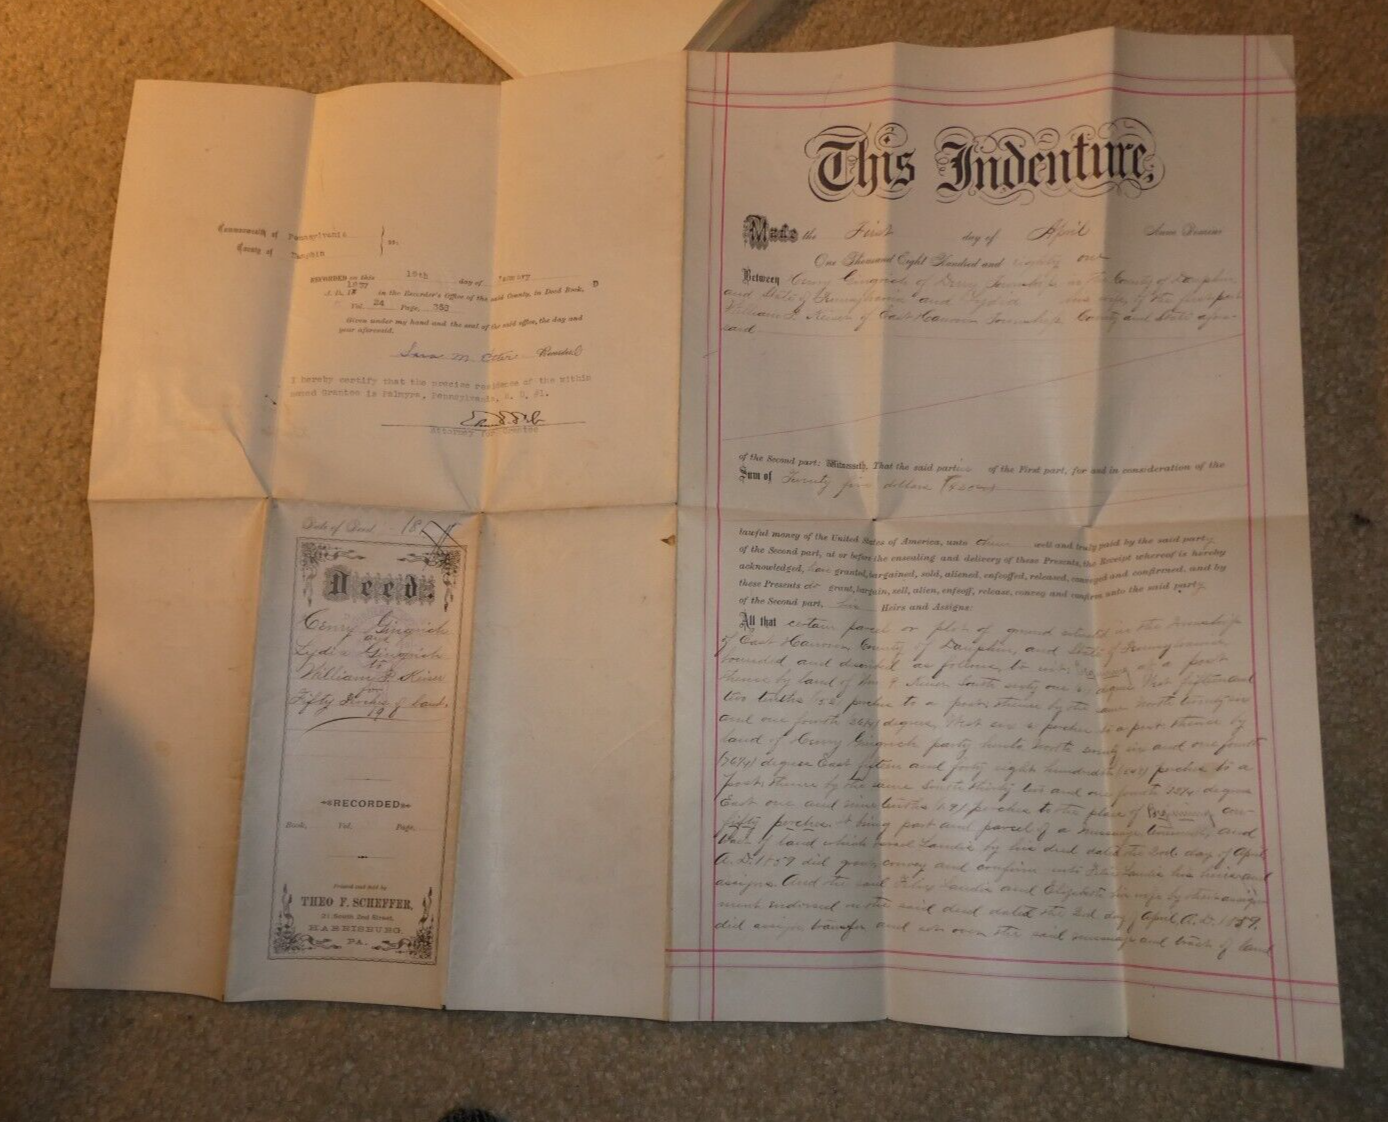 Commonwealth of Pennsylvania
County of Dauphin
} ss.
RECORDED on this 19th day of January
A. D. 1937 in the Recorder's Office of the said County, in Deed Book, D
Vol. 24 Page, 352
Given under my hand and the seal of the said office, the day and
year aforesaid.
Sara M. Recorder
I hereby certify that the precise residence of the within
named Grantee is Palmyra, Pennsylvania, R. D. #1.
Attorney for Grantee
Date of Deed 18
Deed.
Henry Gingrich
and
Lydia Gingrich
to
William F.
for
Fifty Perches of land.
19
RECORDED
Book, Vol. Page,
Printed and Sold by
THEO F. SCHEFFER,
21 South 2nd Street,
HARRISBURG,
PA.
This Indenture,
Made the First day of April Anno Domini
One Thousand Eight Hundred and eighty one
Between Henry Gingrich of Derry Township in the County of Dauphin
and State of Pennsylvania and Lydia his wife, of the first part
William of East Hanover Township County and State afore-
said
of the Second part: Witnesseth, That the said parties of the First part, for and in consideration of the
Sum of Twenty five dollars
lawful money of the United States of America, unto them well and truly paid by the said party
of the Second part, at or before the ensealing and delivery of these Presents, the Receipt whereof is hereby
acknowledged, have granted, bargained, sold, aliened, enfeoffed, released, conveyed and confirmed, and by
these Presents do grant, bargain, sell, alien, enfeoff, release, convey and confirm unto the said party
of the Second part, his Heirs and Assigns:
All that certain parcel or plot of ground situate in the Township
of East Hanover County of Dauphin, and State of Pennsylvania
bounded and described as follows, to wit: Beginning at a post
thence by land of South sixty one degree West fifteen and
two tenths perches to a post, thence by the same North twenty six
and one fourth degree, West six perches to a post thence by
land of Henry Gingrich party hereto North seventy six and one fourth
(76¼) degree East fifteen and forty eight hundredths perches to a
post, thence by the same South thirty two and one fourth 32¼ degree
East one and nine tenths (1.9) perches to the place of Beginning con-
fifty perches. It being part and parcel of a messuage tenement and
tract of land which Landis by his deed dated the 2nd day of April
A. D. 1859 did grant convey and confirm unto Felix Landis his heirs and
assigns. And the said Felix Landis and Elizabeth his wife by their assign
ment endorsed on the said deed dated the 2nd day of April A. D. 1859.
did assign transfer and set over the said messuage and tract of land